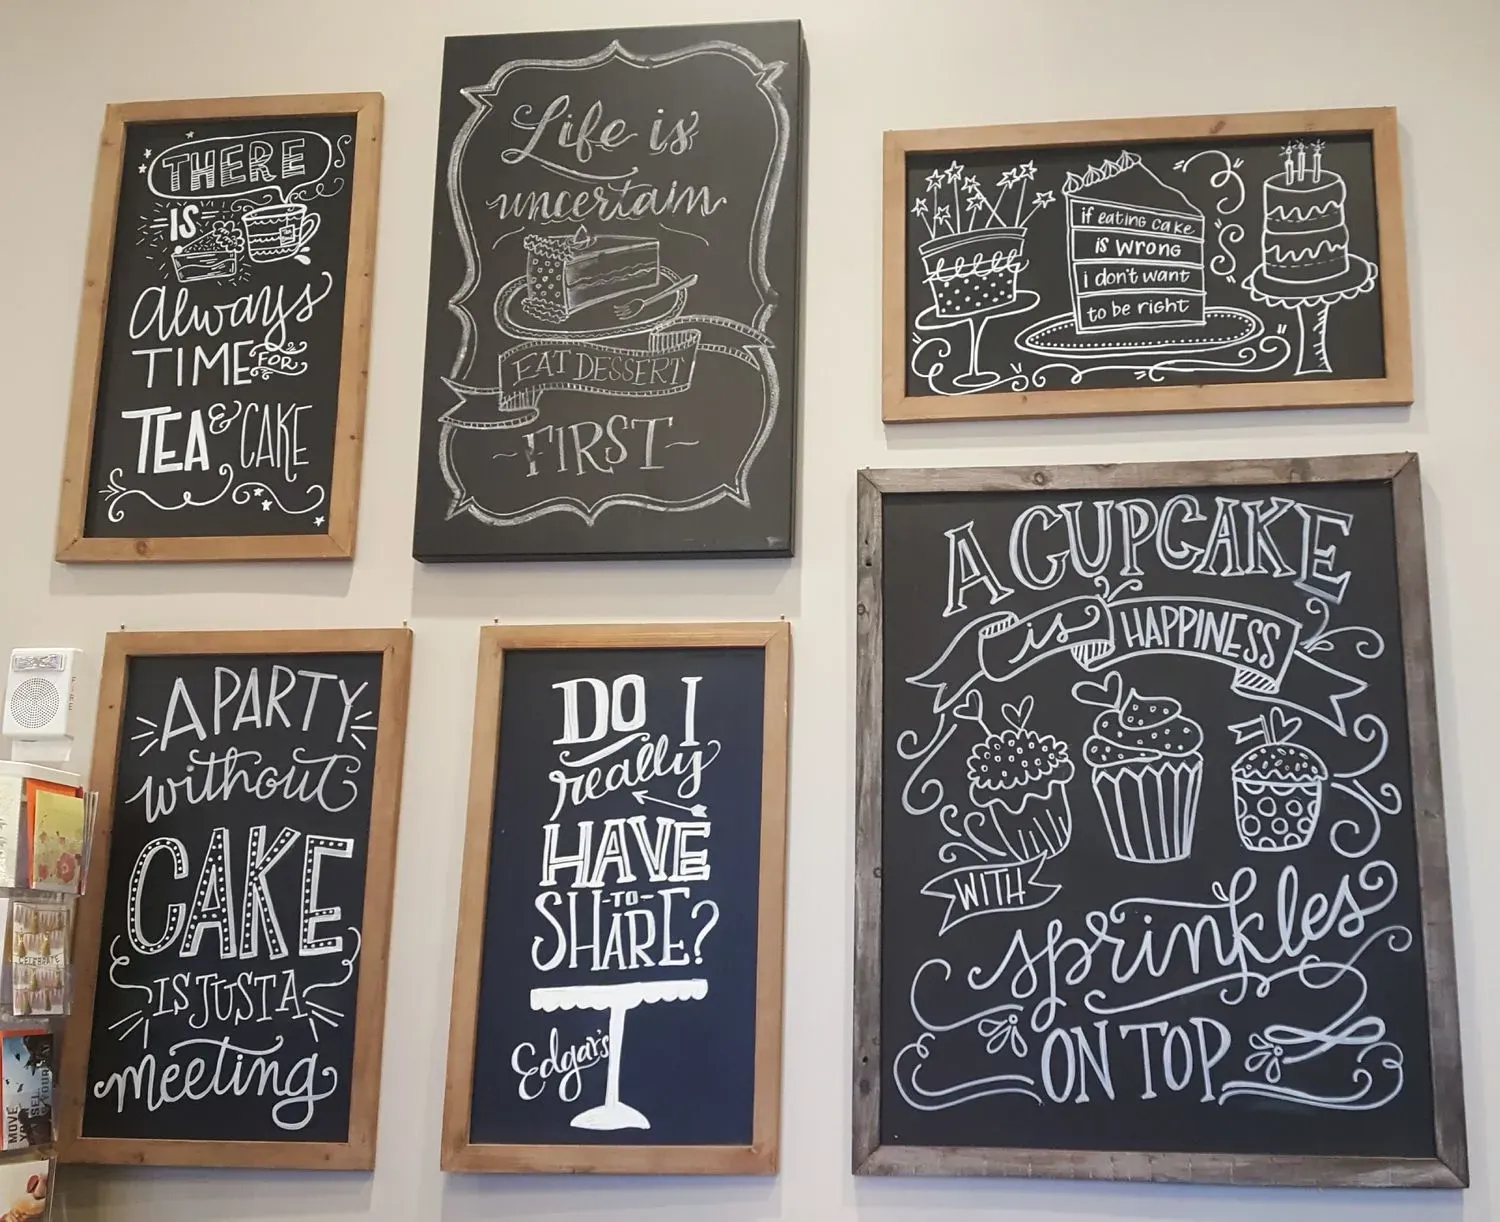 THERE
IS
always
TIME FOR
TEA & CAKE
Life is
uncertain
EAT DESSERT
FIRST
if eating cake
is wrong
i don't want
to be right
A PARTY
without
CAKE
IS JUST A
meeting
DO I
really
HAVE
TO
SHARE?
Edgar's
A CUPCAKE
is HAPPINESS
WITH
sprinkles
ON TOP
FIRE
CELEBRATE
MOVE